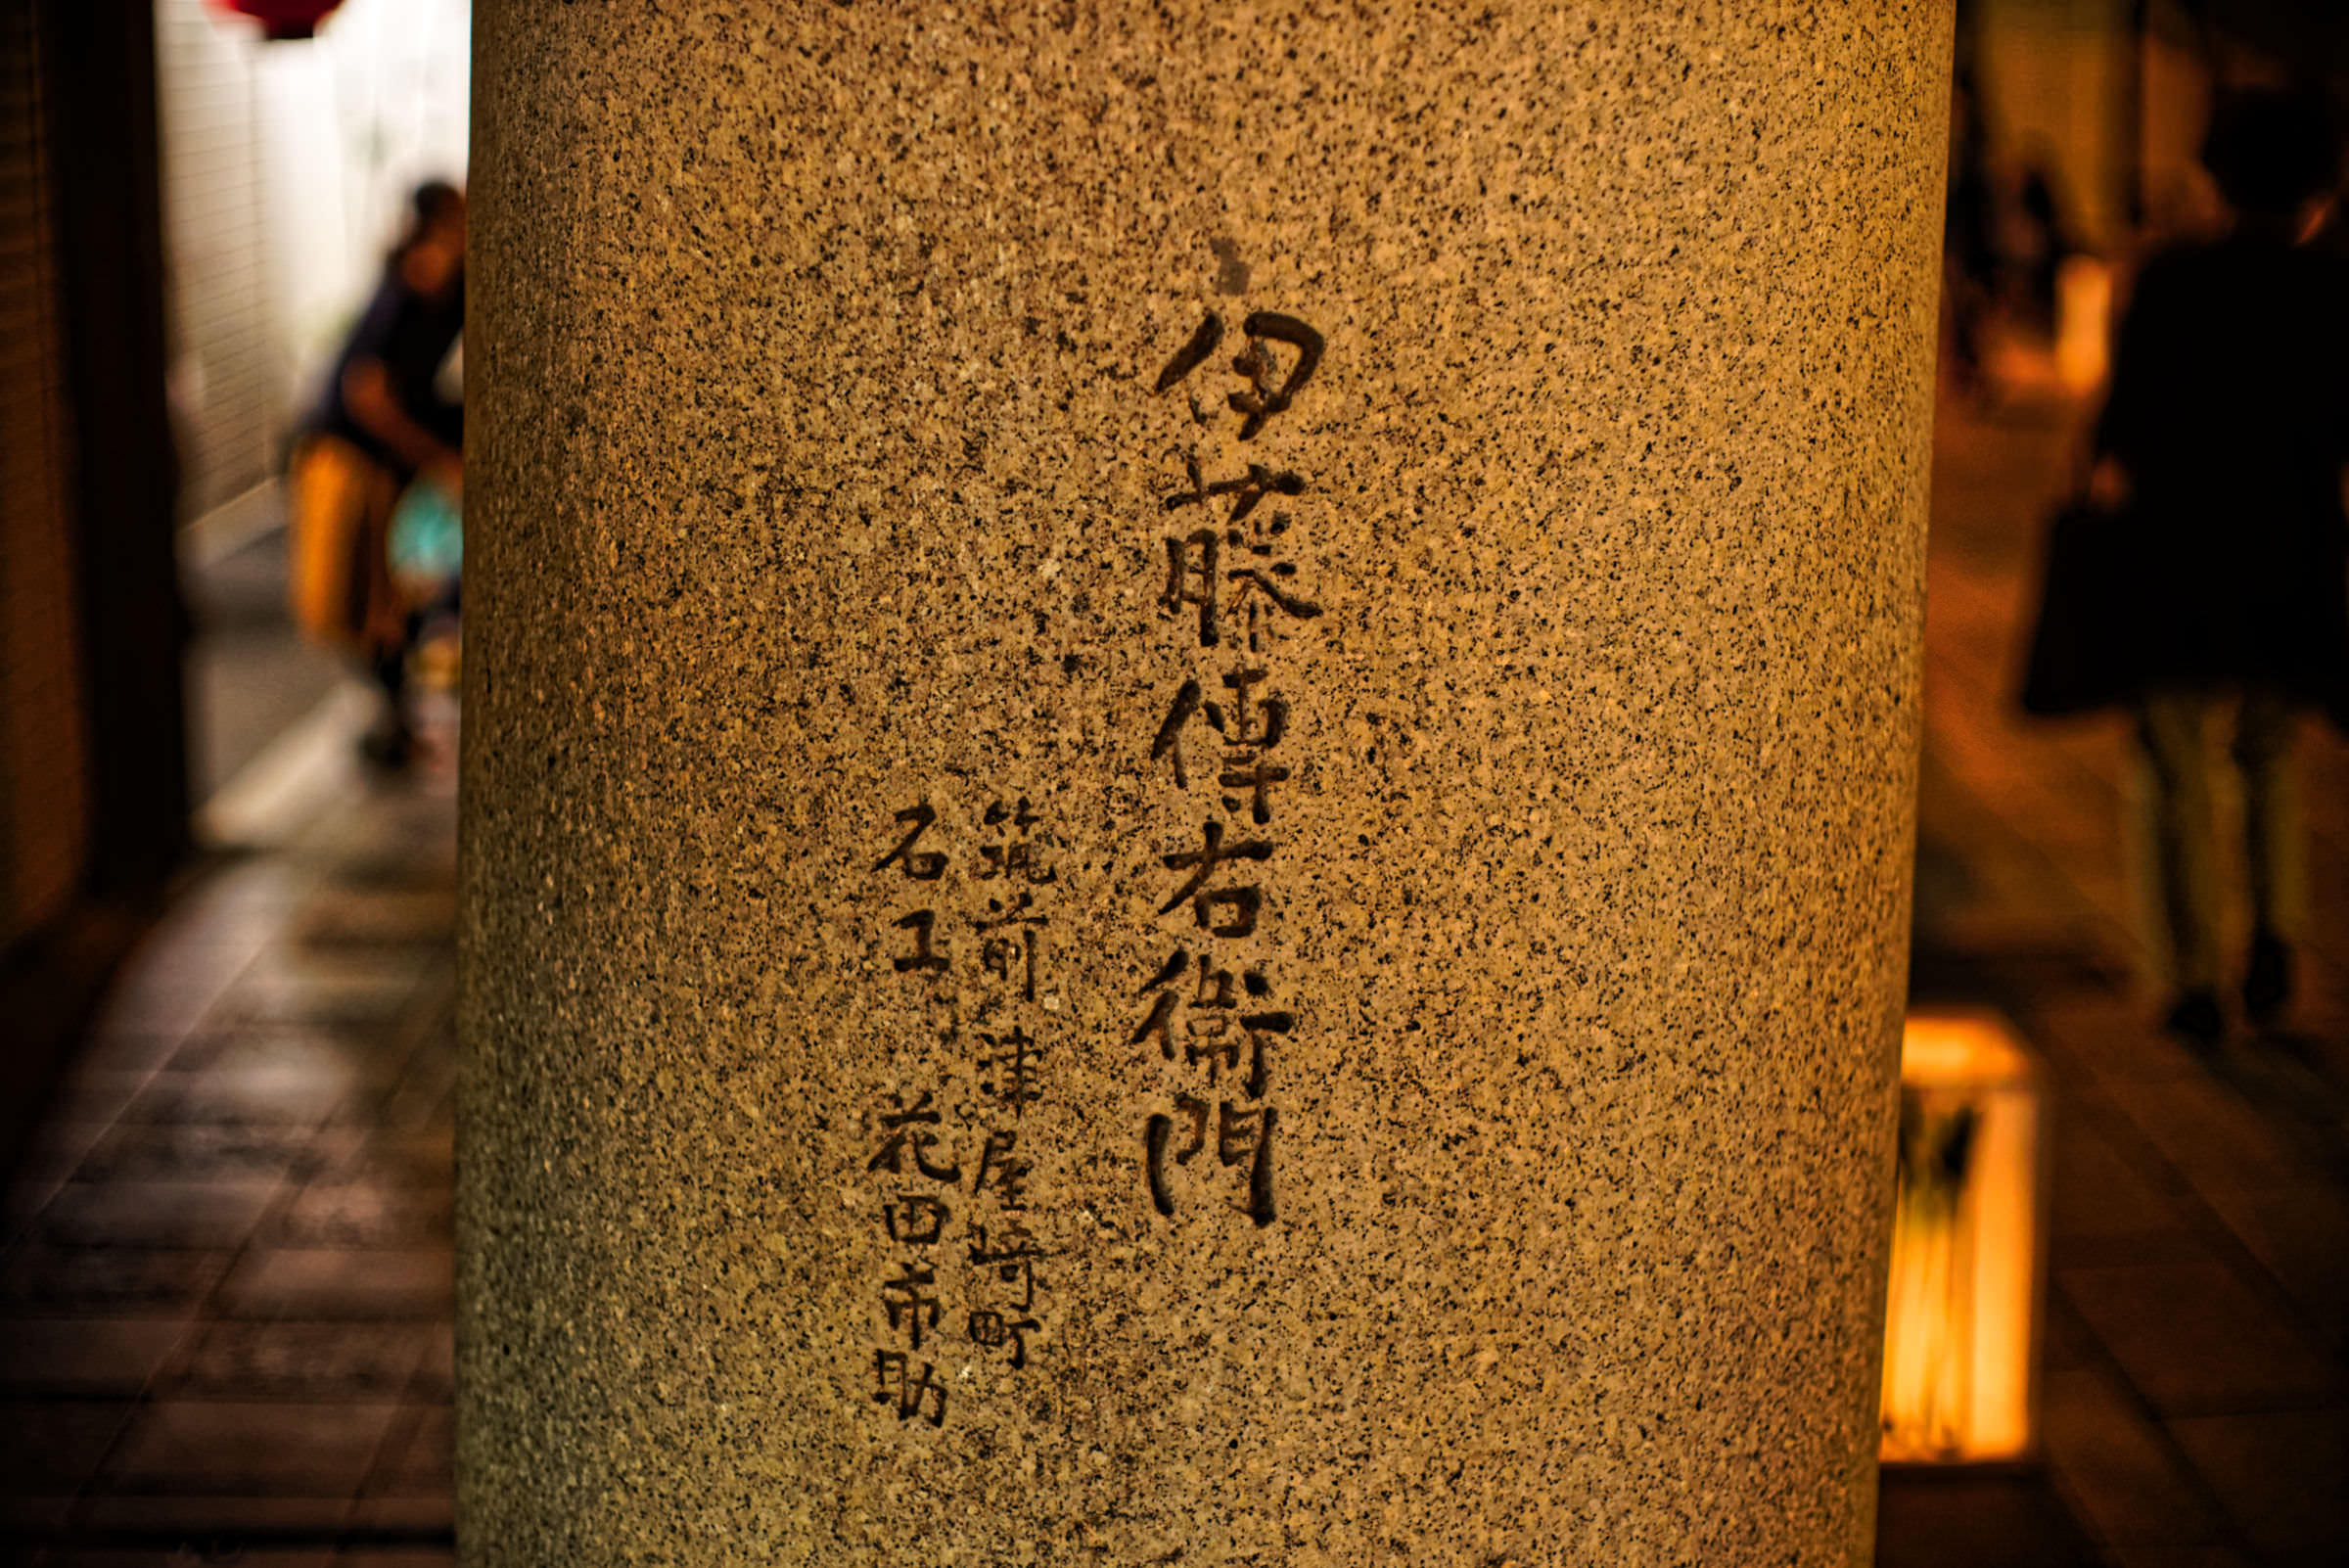 伊藤傳右衛門
筑前津屋崎町
石工 花田市助